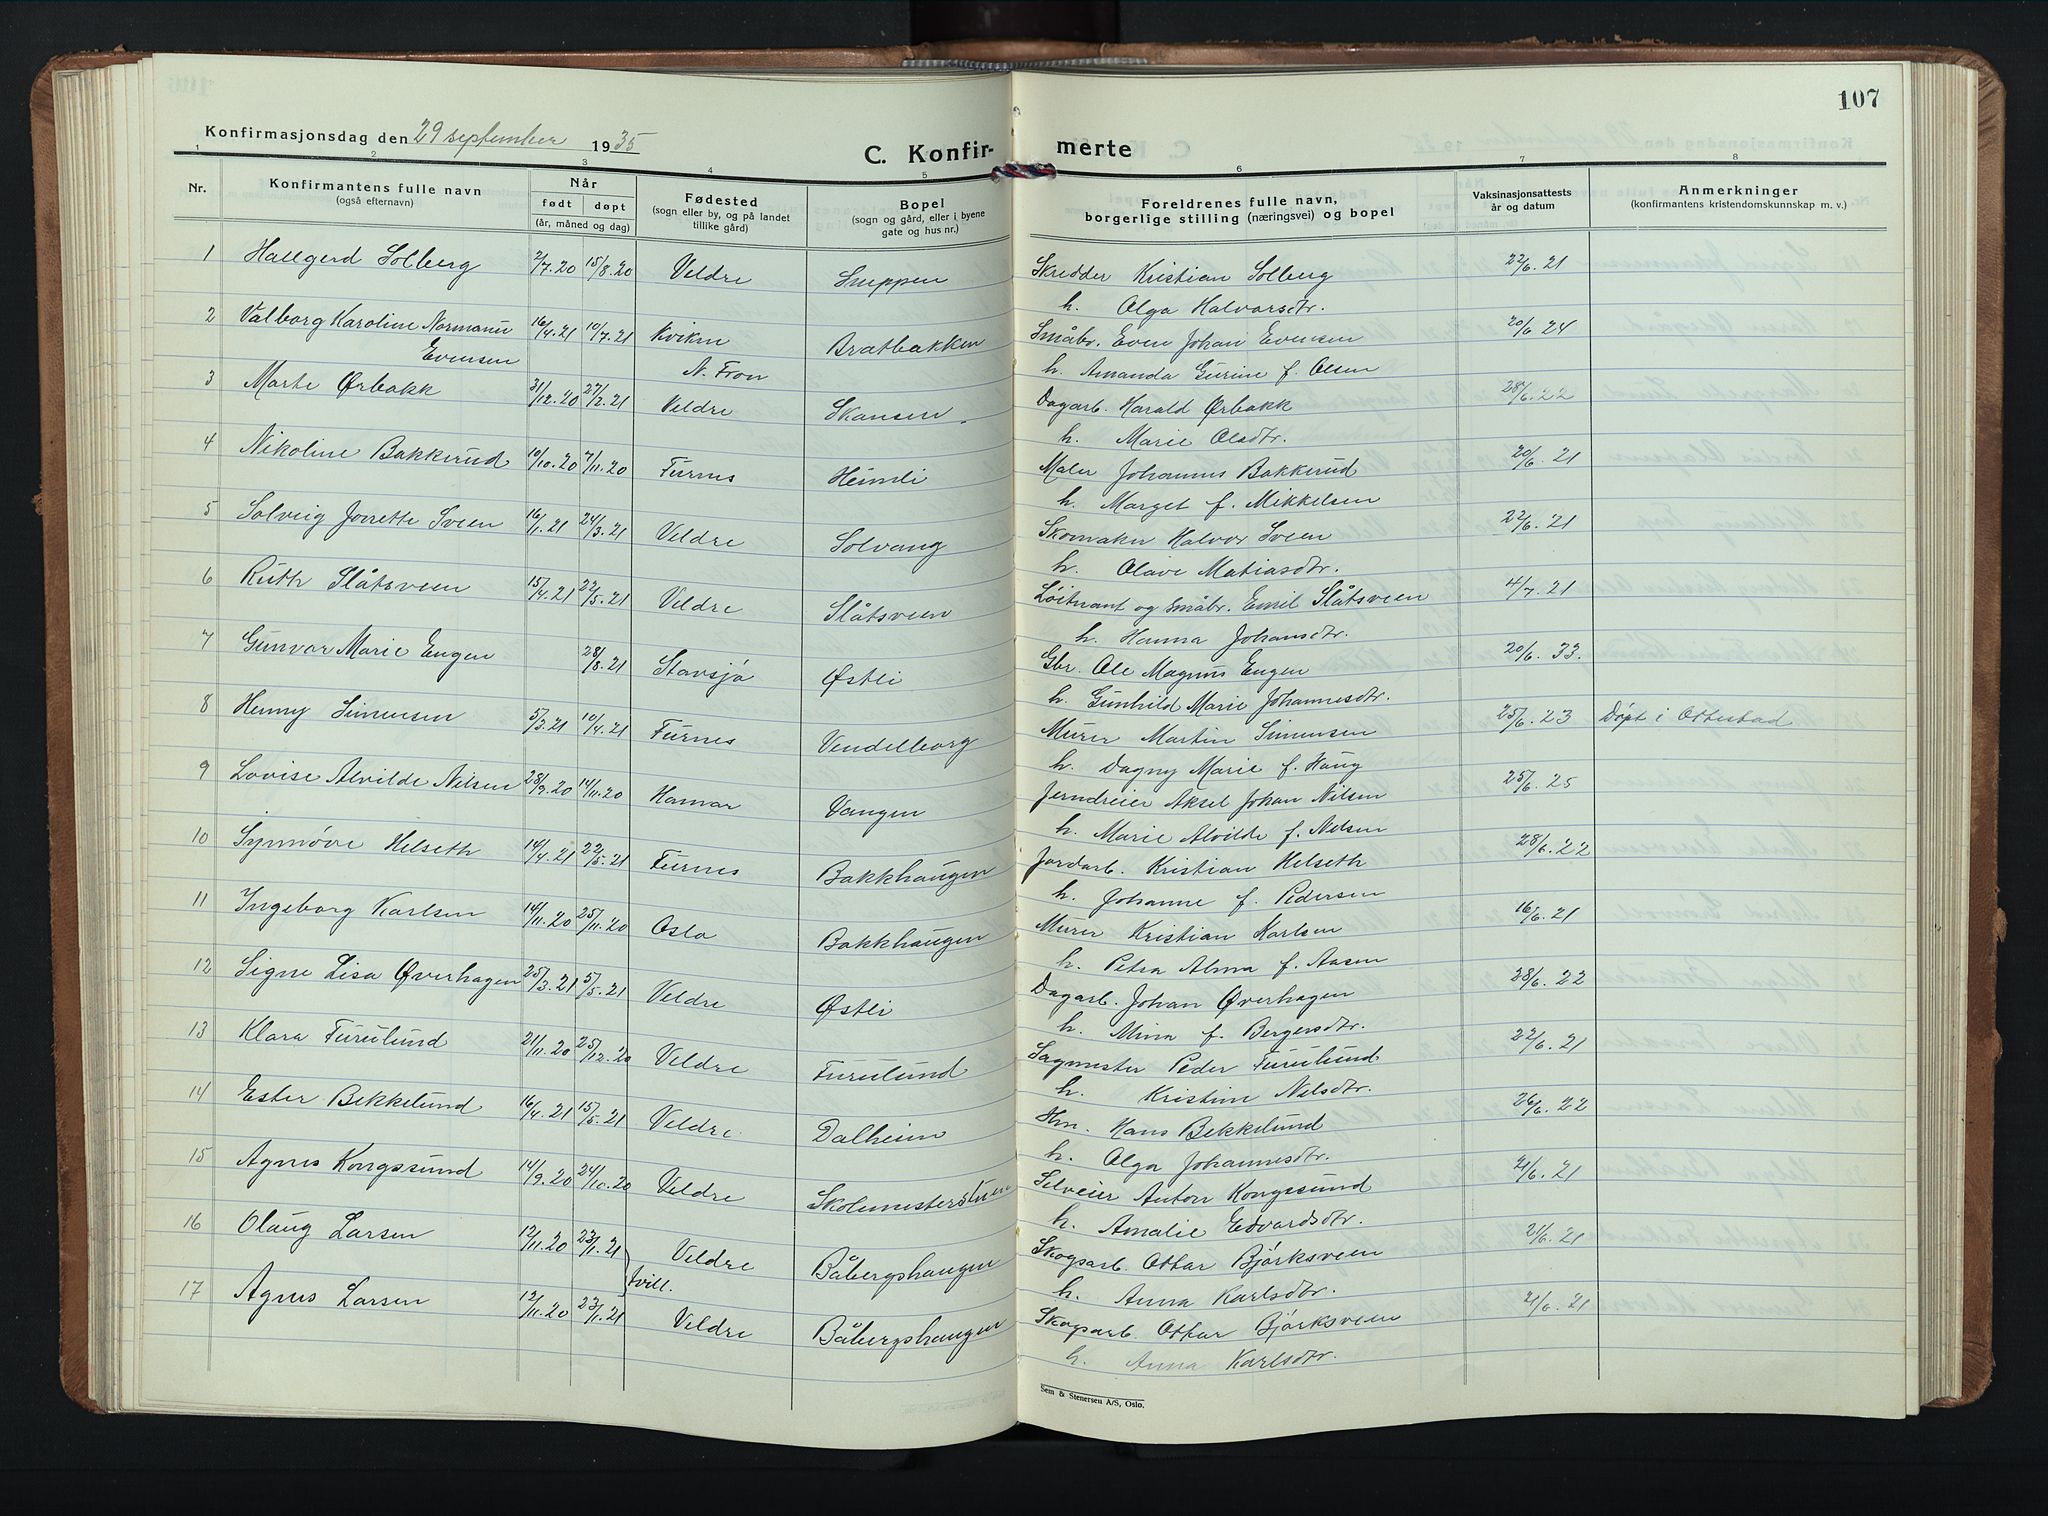 107
Konfirmasjonsdag den 29 september 1935
C. Konfir- merte
1 2 3 4 5 6 7 8
Nr. Konfirmantens fulle navn (også efternavn) Når født døpt (år, måned og dag) Fødested (sogn eller by, og på landet tillike gård) Bopel (sogn og gård, eller i byene gate og hus nr.) Foreldrenes fulle navn, borgerlige stilling (næringsvei) og bopel Vaksinasjonsattests år og datum Anmerkninger (konfirmantens kristendomskunnskap m. v.)
1 Hallgerd Solberg 2/7.20 15/8.20 Veldre Snippen Skredder Kristian Solberg 22/6.21
h. Olga Halvorsdtr.
2 Valborg Karoline Normann 16/4.21 10/7.21 Kvikne Bratbakken Småbr. Even Johan Evensen 20/6.24
Evensen N. Fron h. Amanda Gurine f. Olsen
3 Marte Ørbakk 31/12.20 27/2.21 Veldre Skansen. Dagarb. Harald Ørbakk 28/6.22
h. Marie Olsdtr.
4 Nikoline Bakkerud 10/10.20 7/11.20 Furnes Heimli Maler Johannes Bakkerud 20/6.21
h. Marget f. Mikkelsen
5 Solveig Jonette Sveen 16/1.21 24/3.21 Veldre Solvang Skomaker Halvor Sveen 22/6.21
h. Olave Matiasdtr.
6 Ruth Slåtsveen 15/4.21 22/5.21 Veldre Slåtsveen Løitnant og småbr. Emil Slåtsveen 4/7.21
h. Hanna Johansdtr.
7 Gunvor Marie Engen 28/8.21 Stavsjø Østli Gbr. Ole Magnus Engen 20/6.33.
h. Gunhild Marie Johannesdtr.
8 Henny Simensen 5/3.21 10/4.21 Furnes Vendelborg Murer Martin Simensen 25/6.23 Døpt i Ottestad
h. Dagny Marie f. Haug
9 Lovise Alvilde Nilsen 28/9.20 14/11.20 Hamar Vangen Jerndreier Aksel Johan Nilsen 25/6.25
h. Marie Alvilde f. Nilsen
10 Synnøve Helseth 14/4.21 22/5.21 Furnes Bakkhaugen Jordarb. Kristian Helseth 28/6.22
h. Johanne f. Pedersen
11 Ingeborg Karlsen 14/11.20 25/11.20 Oslo Bakkhaugen Murer Kristian Karlsen 16/6.21
h. Petra Alma f. Aasen
12 Signe Lisa Øverhagen 25/3.21 5/5.21 Veldre Østli Dagarb. Johan Øverhagen 28/6.22
h. Mina f. Bergersdtr.
13 Klara Furulund 21/11.20 25/12.20 Veldre Furulund Sagmester Peder Furulund 22/6.21
h. Kristine Nilsdtr.
14 Ester Bekkelund 16/4.21 15/5.21 Veldre. Dalheim Hm. Hans Bekkelund 26/6.22
h. Olga Johannesdtr.
15 Agnes Kongssund 14/9.20 24/10.20 Veldre Skolemesterstuen Selveier Anton Kongssund 21/6.21
h. Amalie Edvardsdtr.
16 Olaug Larsen 12/11.20 23/1.21 Veldre Båbergshaugen Skogsarb. Ottar Bjørksveen 21/6.21
tvill. h. Anna Karlsdtr.
17 Agnes Larsen 12/11.20 23/1.21 Veldre Båbergshaugen Skogsarb. Ottar Bjørksveen 21/6.21
h. Anna Karlsdtr.
Sem & Stenersen A/S, Oslo.